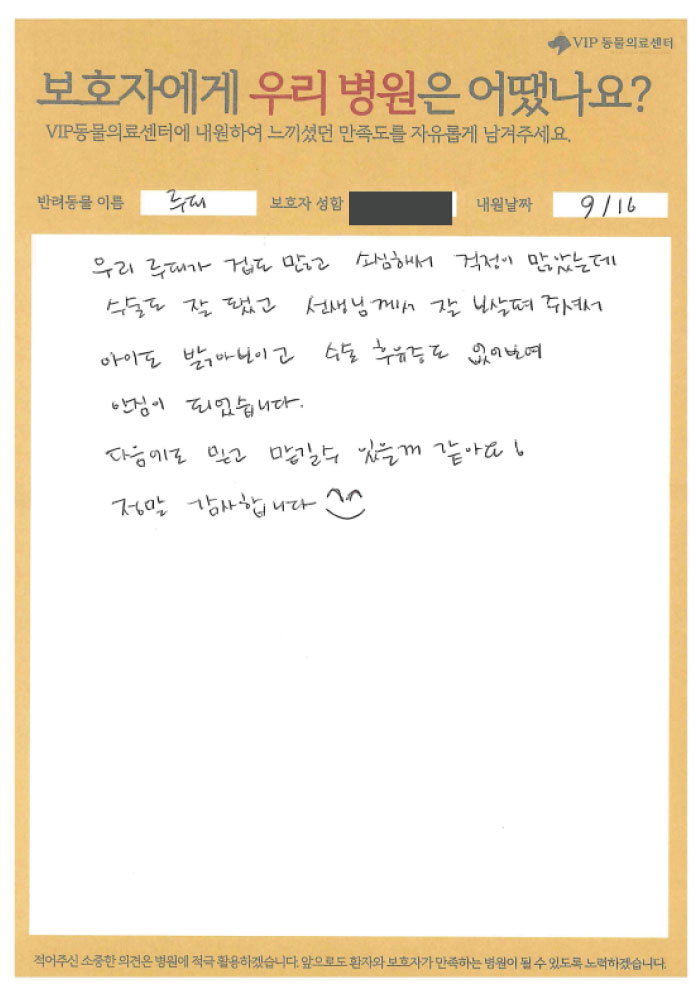 VIP 동물의료센터
보호자에게 우리 병원은 어땠나요?
VIP동물의료센터에 내원하여 느끼셨던 만족도를 자유롭게 남겨주세요.
반려동물 이름 루피 보호자 성함 내원날짜 9/16
우리 루피가 겁도 많고 소심해서 걱정이 많았는데
수술도 잘 됐고 선생님께서 잘 보살펴 주셔서
아이도 밝아보이고 수술 후유증도 없어보여
안심이 되었습니다.
다음에도 믿고 맡길수 있을꺼 같아요!
정말 감사합니다 ^^
적어주신 소중한 의견은 병원에 적극 활용하겠습니다. 앞으로도 환자와 보호자가 만족하는 병원이 될 수 있도록 노력하겠습니다.